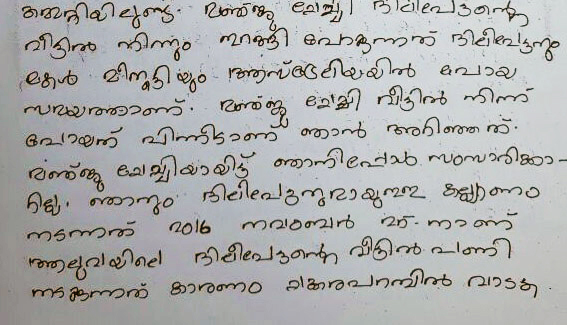 കമ്മറ്റിയിലുണ്ട്. മഞ്ജു ചേച്ചി ദിലീപേട്ടന്റെ
വീട്ടിൽ നിന്നും ഇറങ്ങി പോകുന്നത് ദിലീപേട്ടനും
മകൾ മീനൂട്ടിയും ആസ്ട്രേലിയയിൽ പോയ
സമയത്താണ്. മഞ്ജു ചേച്ചി വീട്ടിൽ നിന്ന്
പോയത് പിന്നീടാണ് ഞാൻ അറിഞ്ഞത്.
മഞ്ജു ചേച്ചിയായിട്ട് ഞാനിപ്പോൾ സംസാരിക്കാ-
റില്ല. ഞാനും ദിലീപേട്ടനുമായുള്ള കല്ല്യാണം
നടന്നത് 2016 നവംബർ 25-നാണ്
ആലുവയിലെ ദിലീപേട്ടന്റെ വീട്ടിൽ പണി
നടക്കുന്നത് കാരണം വാടക